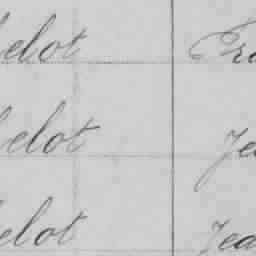 elot Fra
elot Jea
elot Jea